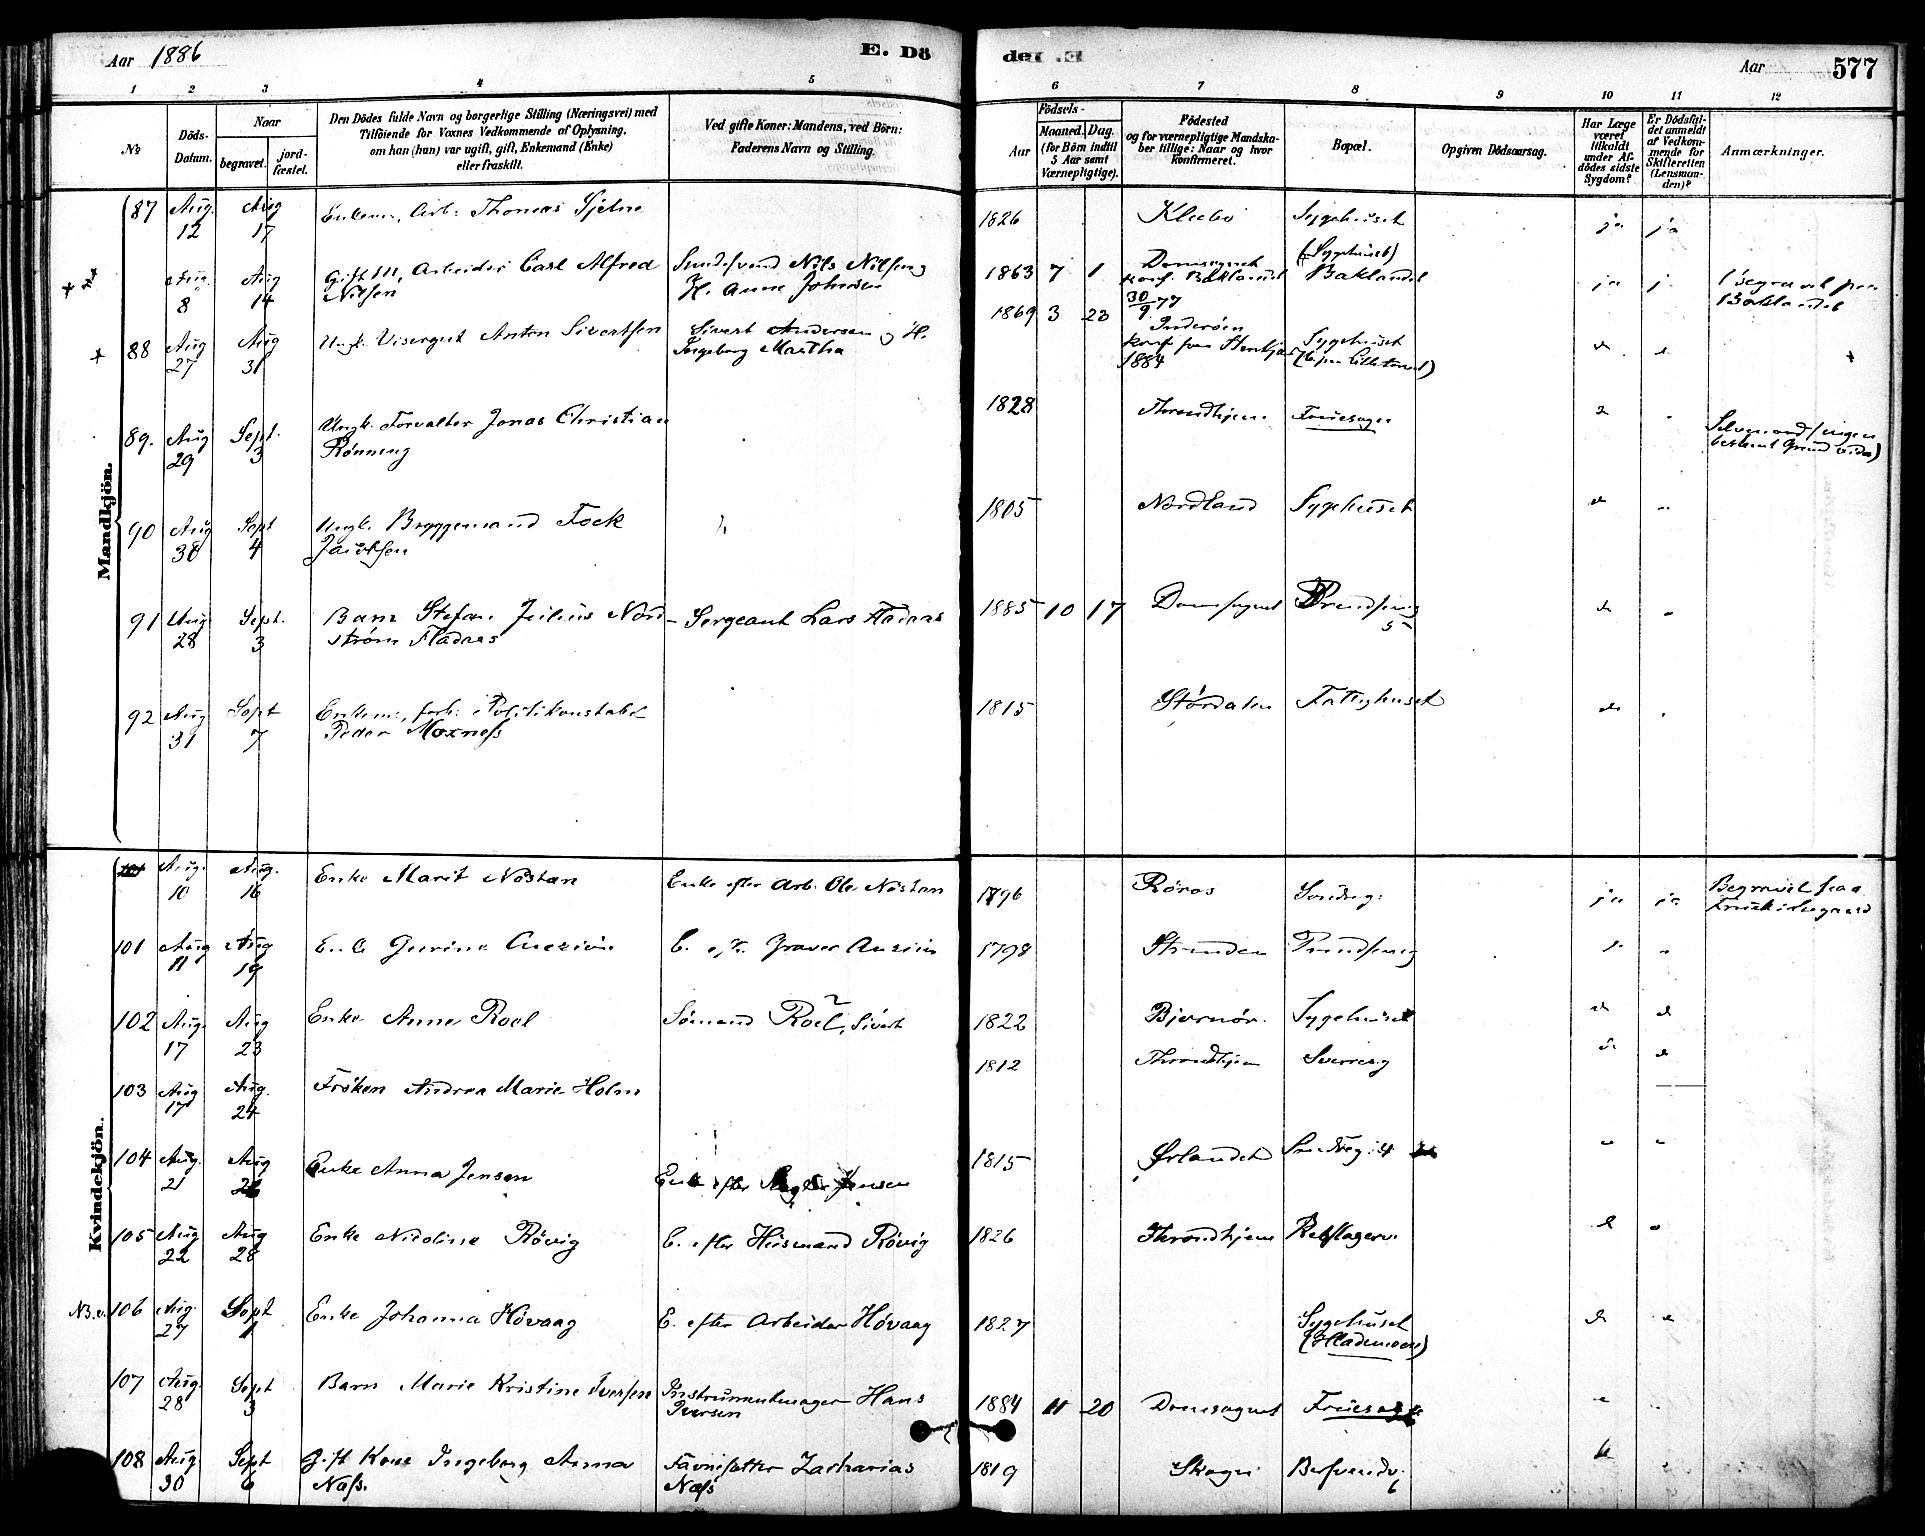 Aar 1886
E. Dö
den .E
Aar
577
1 2 3 4 5 6 7 8 9 10 11 12
№
Döds-Datum.
Naar
begravet.
jord-fæstet.
Den Dödes fulde Navn og borgerlige Stilling (Næringsvei) med
Tilföiende for Voxnes Vedkommende af Oplysning,
om han (hun) var ugift, gift, Enkemand (Enke)
eller fraskilt.
Ved gifte Koner: Mandens, ved Börn:
Faderens Navn og Stilling.
Födsels-
Aar
Maaned. Dag.
(for Börn indtil
5 Aar samt
Værnepligtige).
Födested
og for værnepligtige Mandska-
ber tillige: Naar og hvor
Konfirmeret.
Bopæl.
Opgiven Dödsaarsag.
Har Læge
været
tilkaldt
under Af-
dödes sidste
Sygdom?
Er Dödsfal-
det anmeldt
af Vedkom-
mende for
Skifteretten
(Lensman-
den)?
Anmærkninger.
Mandkjön.
87 Aug. 12 Aug 17 Enkem., Arb. Thomas Tjelne 1826 Klæbo Sygehuset ja ja
Aug. 8 Aug 14 Gift M, Arbeider Carl Alfred
Nilsen
Nils Nilsen og
H. Anne Johnsen
1863 7 1 Domsognet
konf. Baklandet
30/9 77
(Sygehuset)
Baklandet
ja
Begravet paa
Baklandet
88 Aug 27 Aug 31 Ungk. Visergut Anton Sivertsen Sivert Andersen og H.
Ingeborg Martha
1869 3 23 Inderöen
konf. paa Stenkjær
1884
Sygehuset
89. Aug 29 Sept. 3 Ungk. Forvalter Jonas Christian
Rønning
1828 Throndhjem Fruesogn
Selvmord (ingen
bestemt Grund vides)
90 Aug 30 Sept 4 Ungk. Bryggemand Fock
Jacobsen
1805 Nordland Sygehuset
91 Aug 28 Sept. 3 Barn Stefan Julius Nord-
strøm Fladaas
Sergeant Lars Fladaas
1885 10 17 Domsognet
5
92 Aug 31 Sept 7 Enkem., forh. Politikonstabel
Peder Moxness
1815 Stördalen Fattighuset
Kvindekjön.
Aug. 10 Aug. 16 Enke Marit Nöstan Enke efter Arb. Ole Nöstan 1796 Röros ja ja
Begravet paa
Fruekirkegaard
101 Aug 11 Aug 19 Enke Gurine E. eft. Graver 1798 Strinden
102 Aug. 17 Aug 23 Enke Anne Roel Sömand Roel, Sivert 1822 Bjørnör. Sygehuset
103 Aug 17 Aug. 24 Fröken Andrea Marie Holm 1812 Throndhjem Sverresg
104 Aug. 21 Aug 26 Enke Anna Jensen Enke efter Jensen 1815 Ørlandet
105 Aug 22 Aug 28 Enke Nicoline Rövig E. efter Huusmand Rövig 1826 Throndhjem Rebslagerv.
NB. 106 Aug. 27 Sept 1 Enke Johanna Hövaag E. efter Arbeider Hövaag 1827 Sygehuset
(Hlademoen)
107 Aug. 28 Sept 3 Barn Marie Kristine Iversen Instrumentmager Hans
Iversen
1884 11 20 Domsognet Fruesogn
108 Aug. 30 Sept 6 Gift Kone Ingeborg Anna
Næss.
Zacharias
Næss
1819 Skogn
6